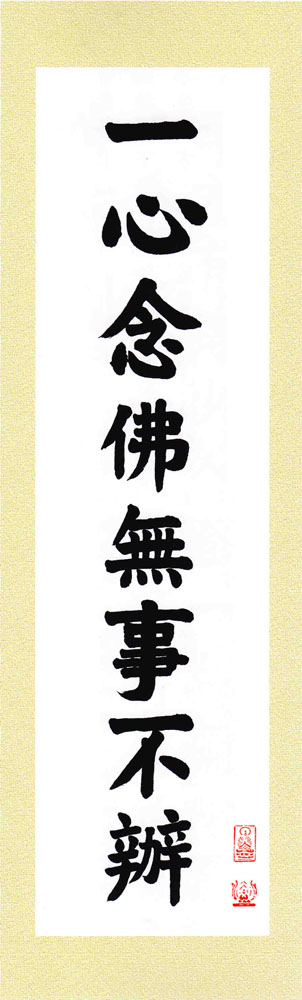 一心念佛無事不辦